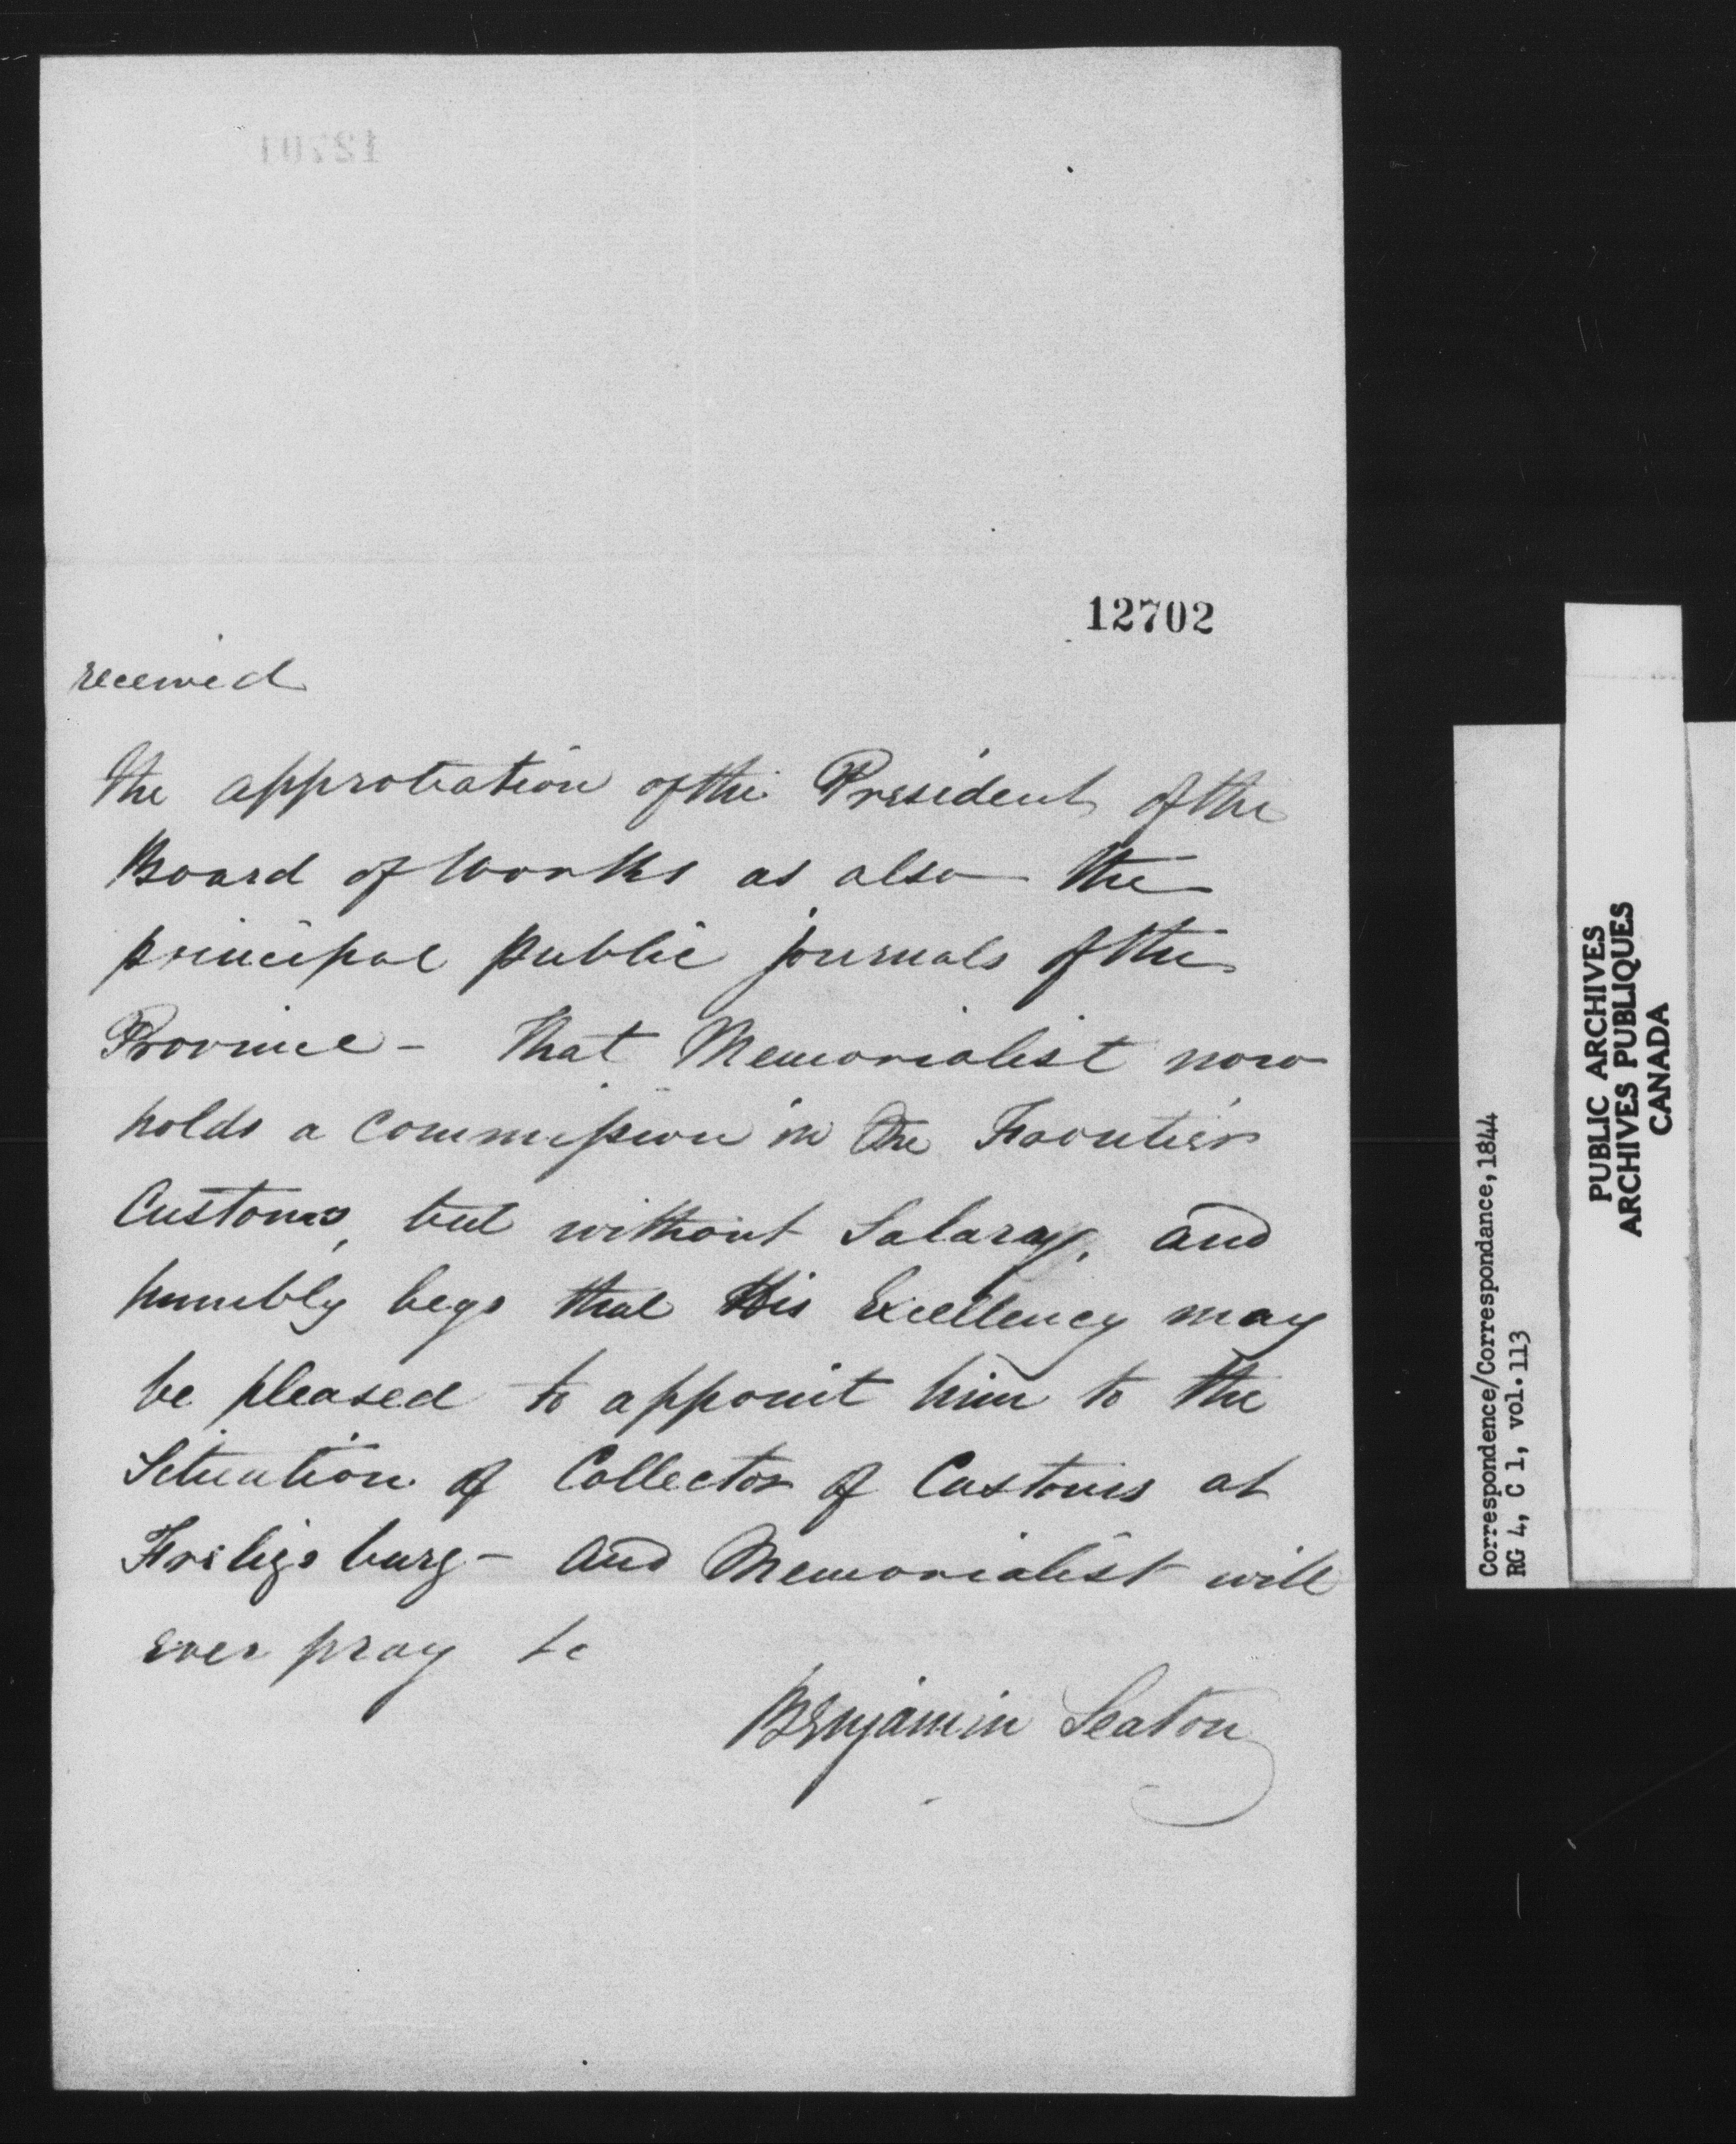 12702
received
the approbation of the President of the
Board of Works as also the
principal public journals of the
Province - That Memorialist now
holds a commission in the Frontier
Customs, but without Salary, and
humbly begs that His Excellency may
be pleased to appoint him to the
Situation of Collector of Customs at
Freligsburg - And Memorialist will
ever pray &c
Benjamin Seaton
Correspondence/Correspondance, 1844
RG 4, C 1, vol. 113
PUBLIC ARCHIVES
ARCHIVES PUBLIQUES
CANADA